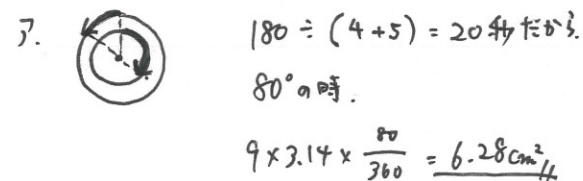 ア. 180 ÷ (4+5) = 20秒だから.
80°の時.
9 × 3.14 × 80/360 = 6.28cm²